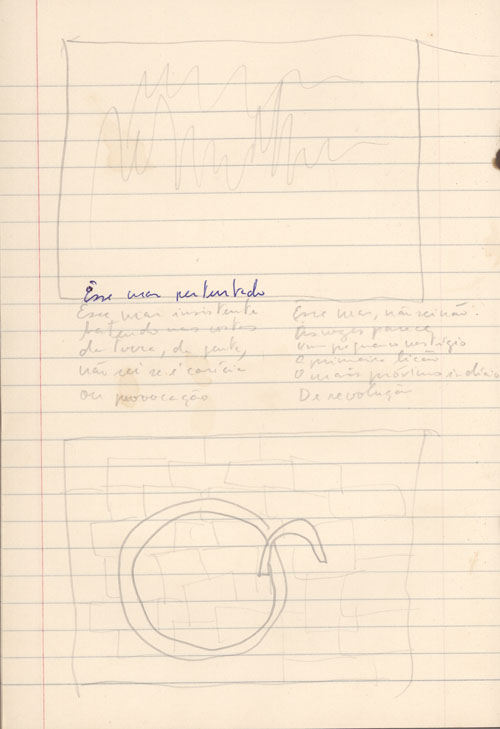 Êsse mar perturbado
Esse mar insistente
batendo nas costas
da terra, da gente,
não sei se é carícia
ou provocação
Esse mar, não sei não:
Às vezes parece
um pequeno vestígio
O primeiro lição
O mais próximo indício
De revolução